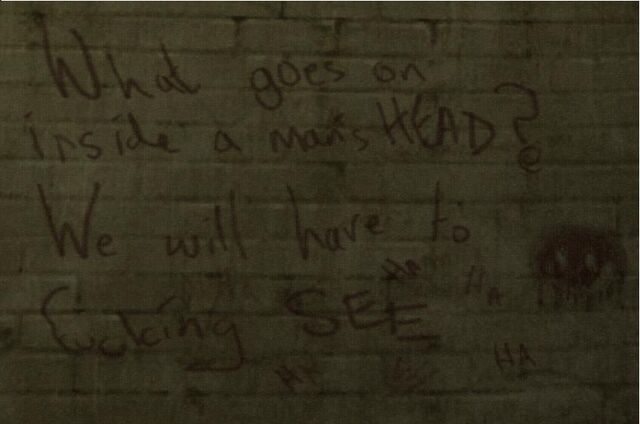 What goes on
inside a man's HEAD?
We will have to
HA
HA
fucking SEE
HA
HA